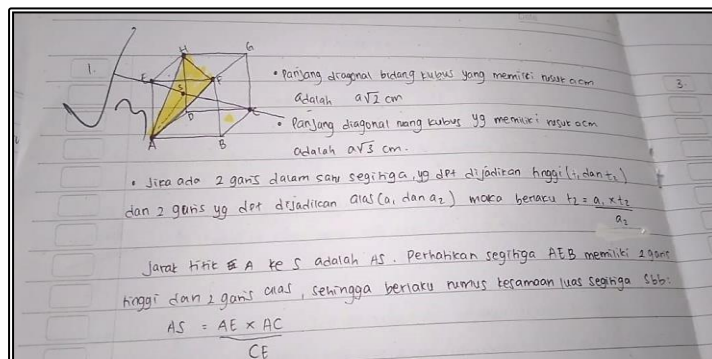 1.
3.
H
G
E
F
S
D
C
A
B
• Panjang diagonal bidang kubus yang memiliki rusuk a cm
adalah a√2 cm
• Panjang diagonal ruang kubus yg memiliki rusuk a cm
adalah a√3 cm.
• Jika ada 2 garis dalam satu segitiga, yg dpt dijadikan tinggi (t, dan t₂)
dan 2 garis yg dpt dijadikan alas (a₁ dan a₂) maka berlaku t₂ = a₁ x t₂
a₂
Jarak titik A ke S adalah AS. Perhatikan segitiga AEB memiliki 2 garis
tinggi dan 2 garis alas, sehingga berlaku rumus kesamaan luas segitiga sbb:
AS = AE × AC
CE